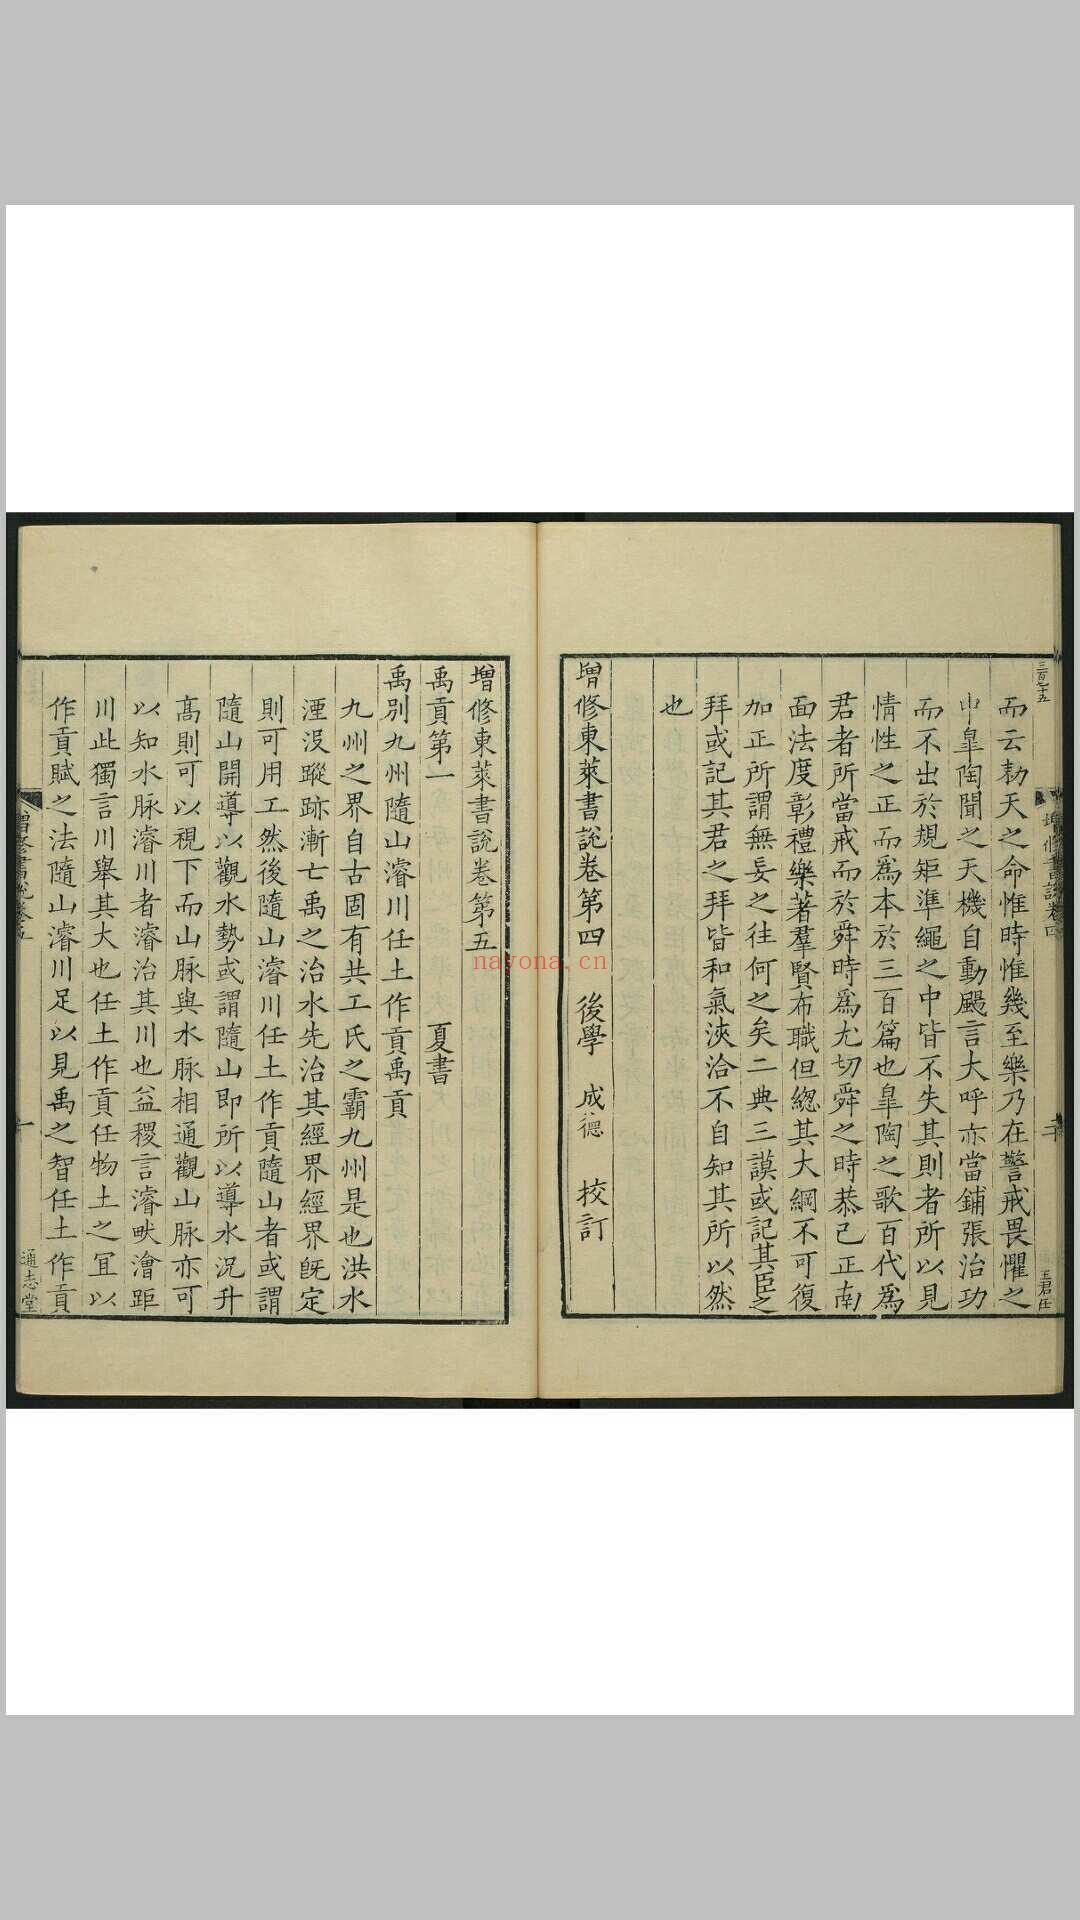 三百七十五
王君任
而云勑天之命惟時惟幾至樂乃在警戒畏懼之
中臯陶聞之天機自動颺言大呼亦當鋪張治功
而不出於規矩準繩之中皆不失其則者所以見
情性之正而爲本於三百篇也臯陶之歌百代爲
君者所當戒而於舜時爲尤切舜之時恭己正南
面法度彰禮樂著羣賢布職但緫其大綱不可復
加正所謂無妄之往何之矣二典三謨或記其臣之
拜或記其君之拜皆和氣浹洽不自知其所以然
也
增修東萊書說卷第四 後學 成德 校訂
增修東萊書說卷第五
禹貢第一 夏書
禹別九州隨山濬川任土作貢禹貢
九州之界自古固有共工氏之霸九州是也洪水
湮沒蹤跡漸亡禹之治水先治其經界經界旣定
則可用工然後隨山濬川任土作貢隨山者或謂
隨山開導以觀水勢或謂隨山即所以導水況升
高則可以視下而山脉與水脉相通觀山脉亦可
以知水脉濬川者濬治其川也益稷言濬畎澮距
川此獨言川舉其大也任土作貢任物土之宜以
作貢賦之法隨山濬川足以見禹之智任土作貢
通志堂
nayona.cn